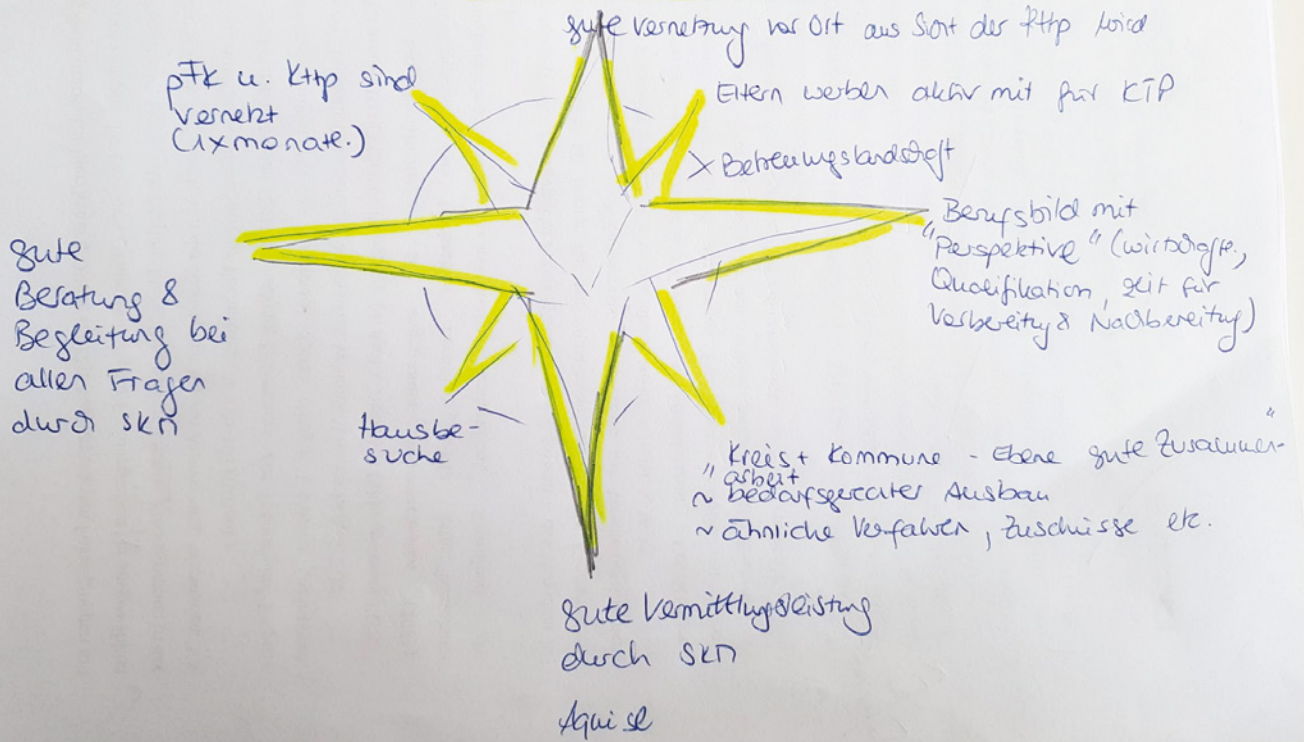 gute Vernetzung vor Ort aus Sicht der Kthp wird
pFk u. Kthp sind
vernetzt
(1xmonatl.)
Eltern werben aktiv mit für KTP
Betreuungslandschaft
Berufsbild mit
"Perspektive" (wirtschaftl.,
Qualifikation, Zeit für
Vorbereitung & Nachbereitung)
gute
Beratung &
Begleitung bei
allen Fragen
durch SKM
Hausbe-
suche
"Kreis + Kommune - Ebene gute Zusammen-"
arbeit
~ bedarfsgerechter Ausbau
~ ähnliche Verfahren, Zuschüsse etc.
gute Vermittlungsleistung
durch SKM
Aquise